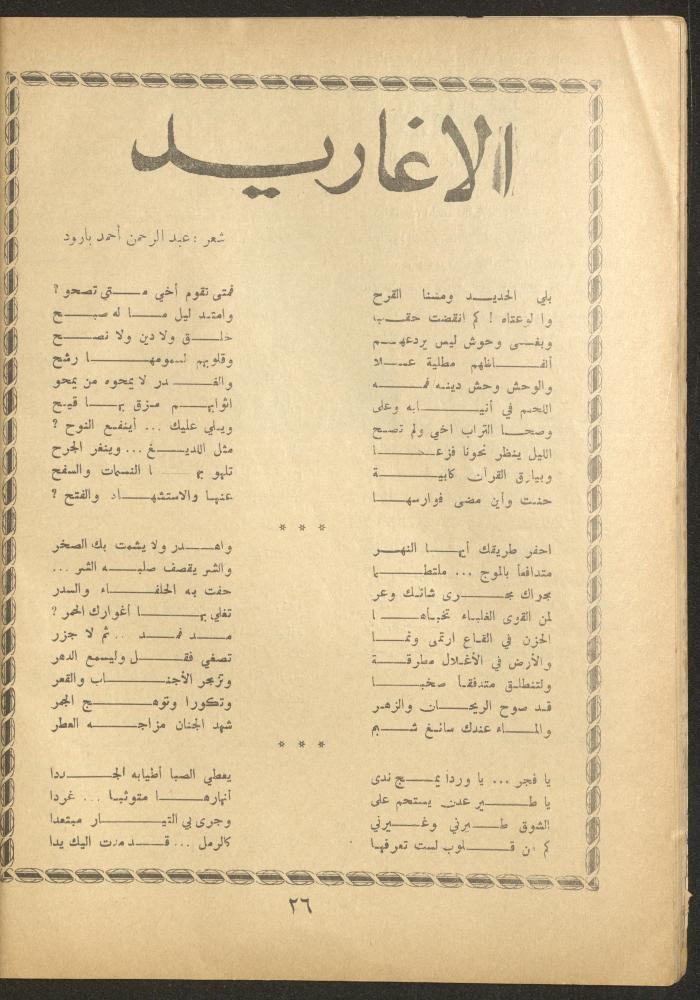 الاغاريد
شعر : عبد الرحمن أحمد بارود
بلي الحديد ومسنا القرح فمتى تقوم أخي متى تصحو ؟
وا لوعتاه ! كم انقضت حقب وامتد ليل ما له صبح
وبغى وحوش ليس يردعهم خلق ولا دين ولا نصح
ألفاظهم مطلية عسلا وقلوبهم لسمومها رشح
والوحش وحش دينه فمه والغدر لا يمحوه من يمحو
اللحم في أنيابه وعلى اثوابهم مزق بها قيح
وصحا التراب اخي ولم تصح ويلي عليك ... أينفع النوح ؟
الليل ينظر نحونا فزعا مثل اللديغ ... وينغر الجرح
وبيارق القرآن كابية تلهو بها النسمات والسفح
حنت وأين مضى فوارسها عنها والاستشهاد والفتح ؟
* * *
احفر طريقك أيها النهر واهدر ولا يشمت بك الصخر
متدافعاً بالموج ... ملتطما والشر يقصف صلبه الشر ...
مجراك مجرى شائك وعر حفت به الحلفاء والسدر
لمن القوى الغلباء تخبأها تغلي بها أغوارك الحمر ؟
الحزن في القاع ارتمى ونما مد فمد .. ثم لا جزر
والأرض في الأغلال مطرقة تصغي فقل وليسمع الدهر
ولتنطلق متدفقا صخبا وتزمجر الأجناب والقعر
قد صوح الريحان والزهر وتكورا وتوهج الجمر
والماء عندك سائغ شبم شهد الجنان مزاجه العطر
* * *
يا فجر ... يا وردا يمج ندى يعطي الصبا أطيابه الجددا
يا طير عدن يستحم على أنهارها متوثبا ... غردا
الشوق طيرني وغيرني وجرى بي التيار مبتعدا
كم من قلوب لست تعرفها كالرمل ... قد مدت اليك يدا
٢٦